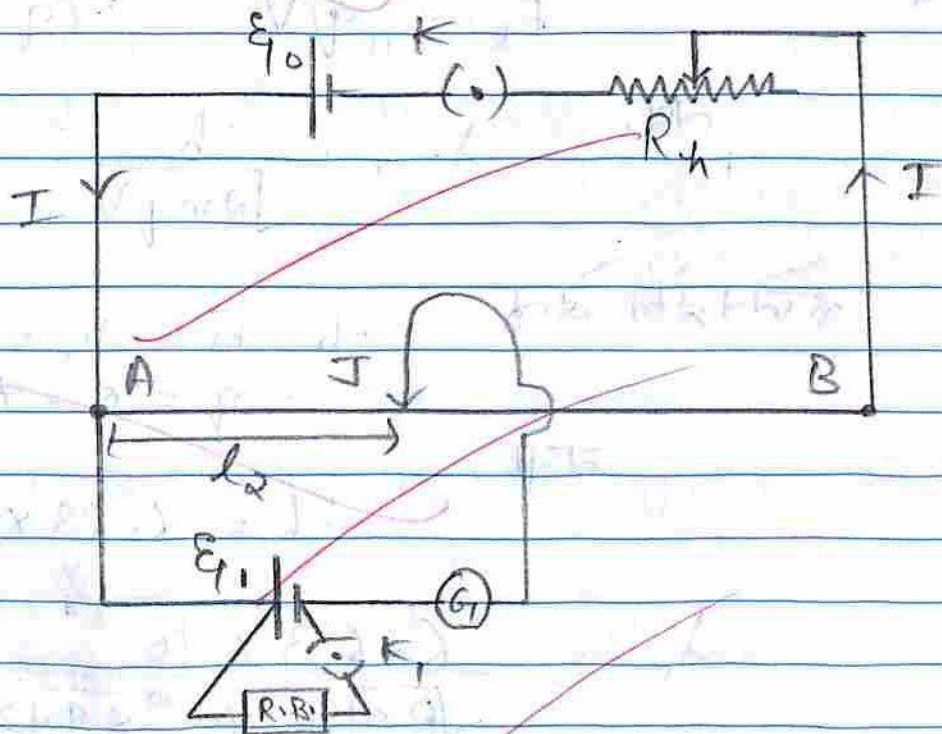 ε₀ K
(•)
Rh
I I
A J B
l₂
ε₁
G₁
K₁
R.B.